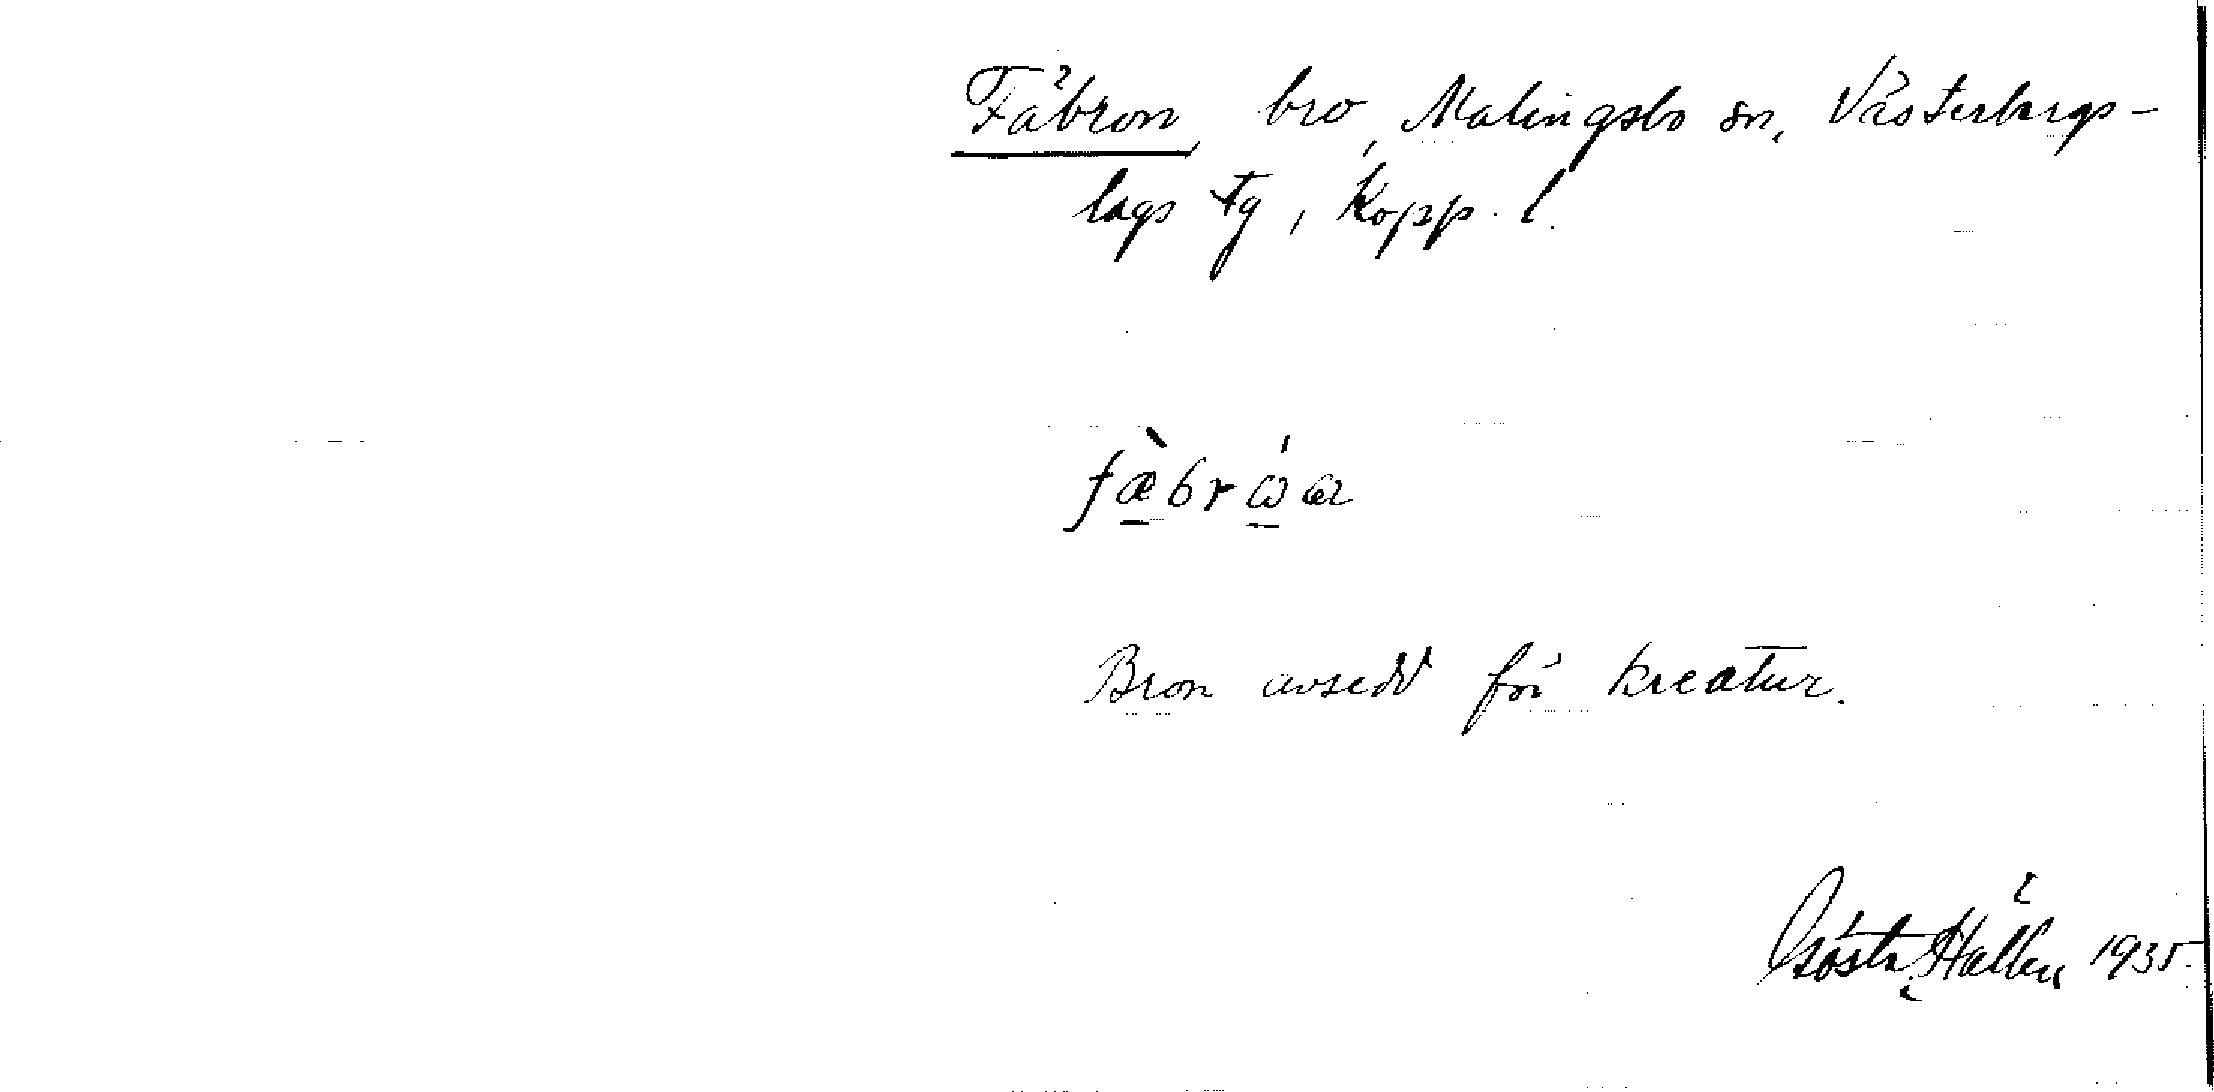 Fäbron, bro, Malingsbo sn, Västerbergs-
lags tg, Kopp. l.
fæ̀brώa
Bron avsedd för kreatur.
Gösta Hallén 1935.